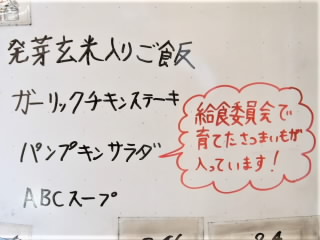 発芽玄米入りご飯
ガーリックチキンステーキ
パンプキンサラダ
給食委員会で
育てたさつまいもが
入っています!
ABCスープ